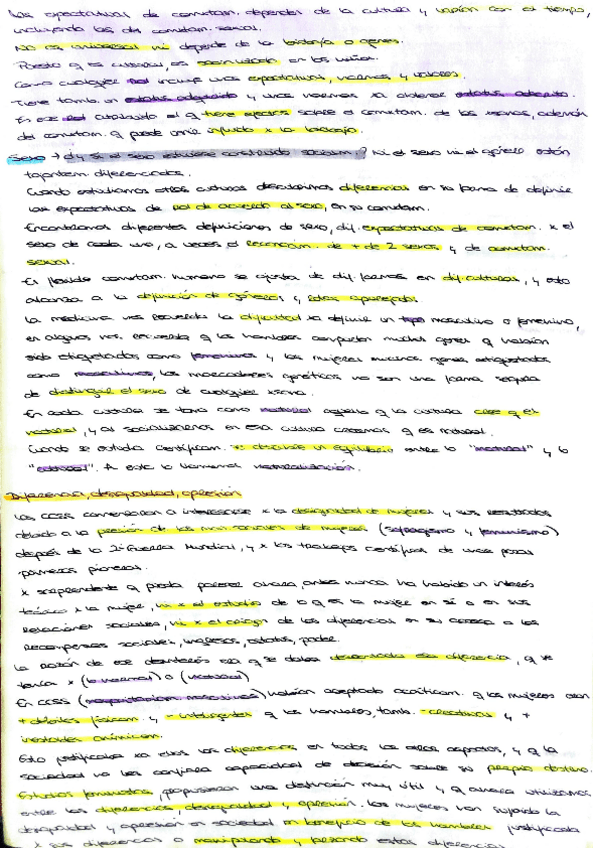 Las expectativas de comutam. dependen de la cultura y varían con el tiempo,
incluyendo las del comutam. sexual.
No es universal ni depende de la biología o genes.
Puesto q es cultural, es socializado en los niños.
Como cualquier rol incluye unas expectativas, normas y valores.
Tiene tamb. un estatus adquirido y unas normas xa obtener estatus adscrito.
En ese rol atribuido al q tiene efectos sobre el comutam. de las xonas, además
del comutam. q puede venir influido x la biología.
Sexo → d y si el sexo estuviese construido socialm? Ni el sexo ni el género están
tajantem. diferenciados.
Cuando estudiamos otras culturas descubrimos diferencias en su forma de definir
las expectativas de rol de acuerdo al sexo, en su comutam.
Encontramos diferentes definiciones de sexo, dif. expectativas de comutam. x el
sexo de cada uno, a veces el reconocim. de + de 2 sexos y de comutam.
sexual.
El comutam. humano se ajusta de dif. formas en dif. culturas, y esto
alcanza a la definición de género y roles aparejados.
La medicina nos recuerda la dificultad xa definir un tipo masculino o femenino,
en algunos nos. encuentra q los hombres comparten muchos genes q habían
sido etiquetados como femeninos y las mujeres muchos genes etiquetados
como masculinos, los marcadores genéticos no son una forma segura
de distinguir el sexo de cualquier xona.
En cada cultura se toma como natural aquello q la cultura cree q es
natural, y al socializarnos en esa cultura creemos q es natural.
Cuando se estudia científicam. se descubre un equilibrio entre lo "natural" y lo
"cultural". A esto lo llamamos naturalización.
Diferencia, desigualdad, opresión
Las CCSS comenzaron a interesarse x la desigualdad de mujeres y sus resultados
debido a la presión de los mov. sociales de mujeres (sufragismo y feminismo)
después de la 2ª Guerra Mundial, y x los trabajos científicos de unas pocas
primeras pioneras.
x sorprendente q pueda parecer ahora, antes nunca ha habido un interés
teórico x la mujer, ni x el estudio de lo q es la mujer en sí o en sus
relaciones sociales, ni x el origen de las diferencias en su acceso a las
recompensas sociales, ingresos, estatus, poder.
La razón de ese desinterés era q se daba desentendida esa diferencia, q se
tenía x (lo normal) o (natural)
En CCSS habían aceptado acríticam. q las mujeres eran
+ débiles físicam. y - inteligentes q los hombres, tamb. - creativas y +
inestables anímicam.
Esto justificaba xa ellos las diferencias en todos los otros aspectos, y q la
sociedad no les confiara capacidad de decisión sobre su propio destino.
Estudios feministas, propusieron una distinción muy útil y q ahora utilizamos
entre las diferencias, desigualdad y opresión. Las mujeres han sufrido la
desigualdad y opresión en sociedad en beneficio de los hombres justificada
x sus diferencias o manipulando y forzando estas diferencias